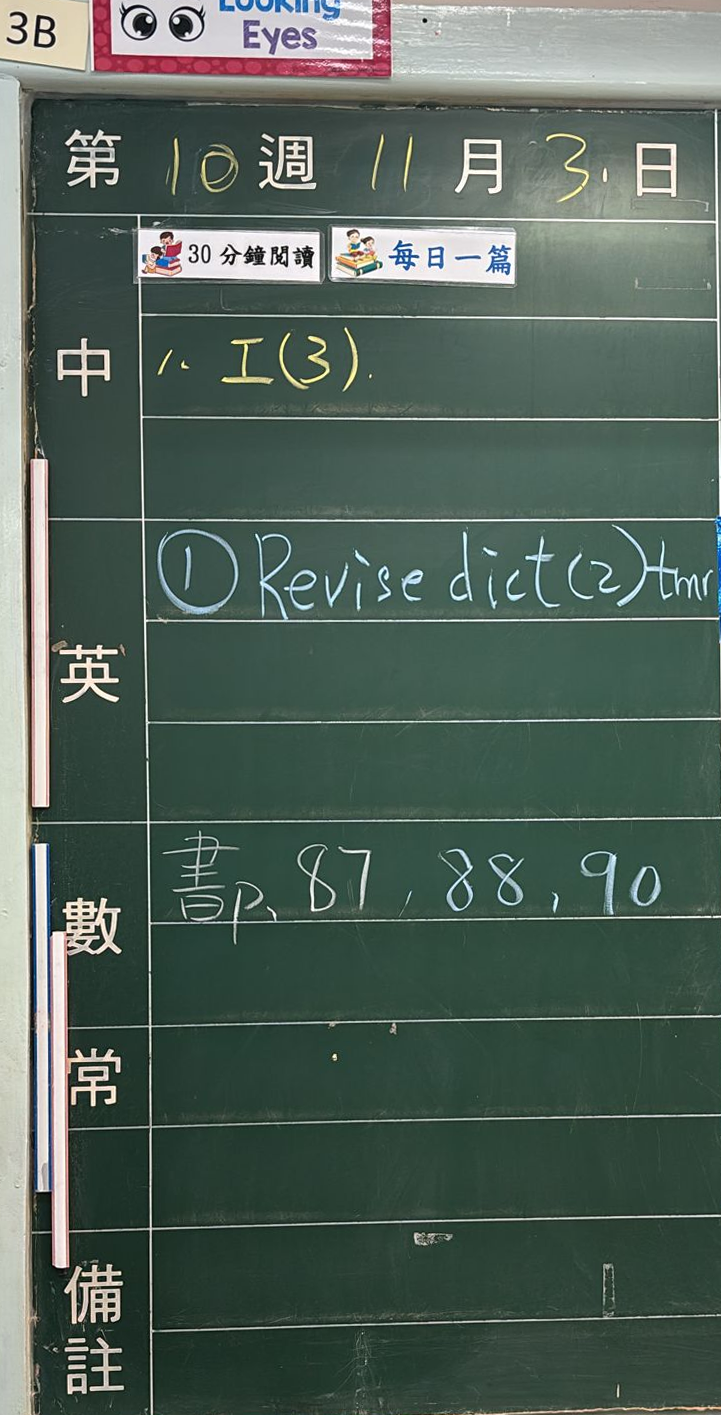 3B
Looking
Eyes
第 10 週 11 月 3 日
30 分鐘閱讀 每日一篇
中
1. 工(3).
① Revise dict(2) tmr
英
書P. 87, 88, 90
數
常
備
註